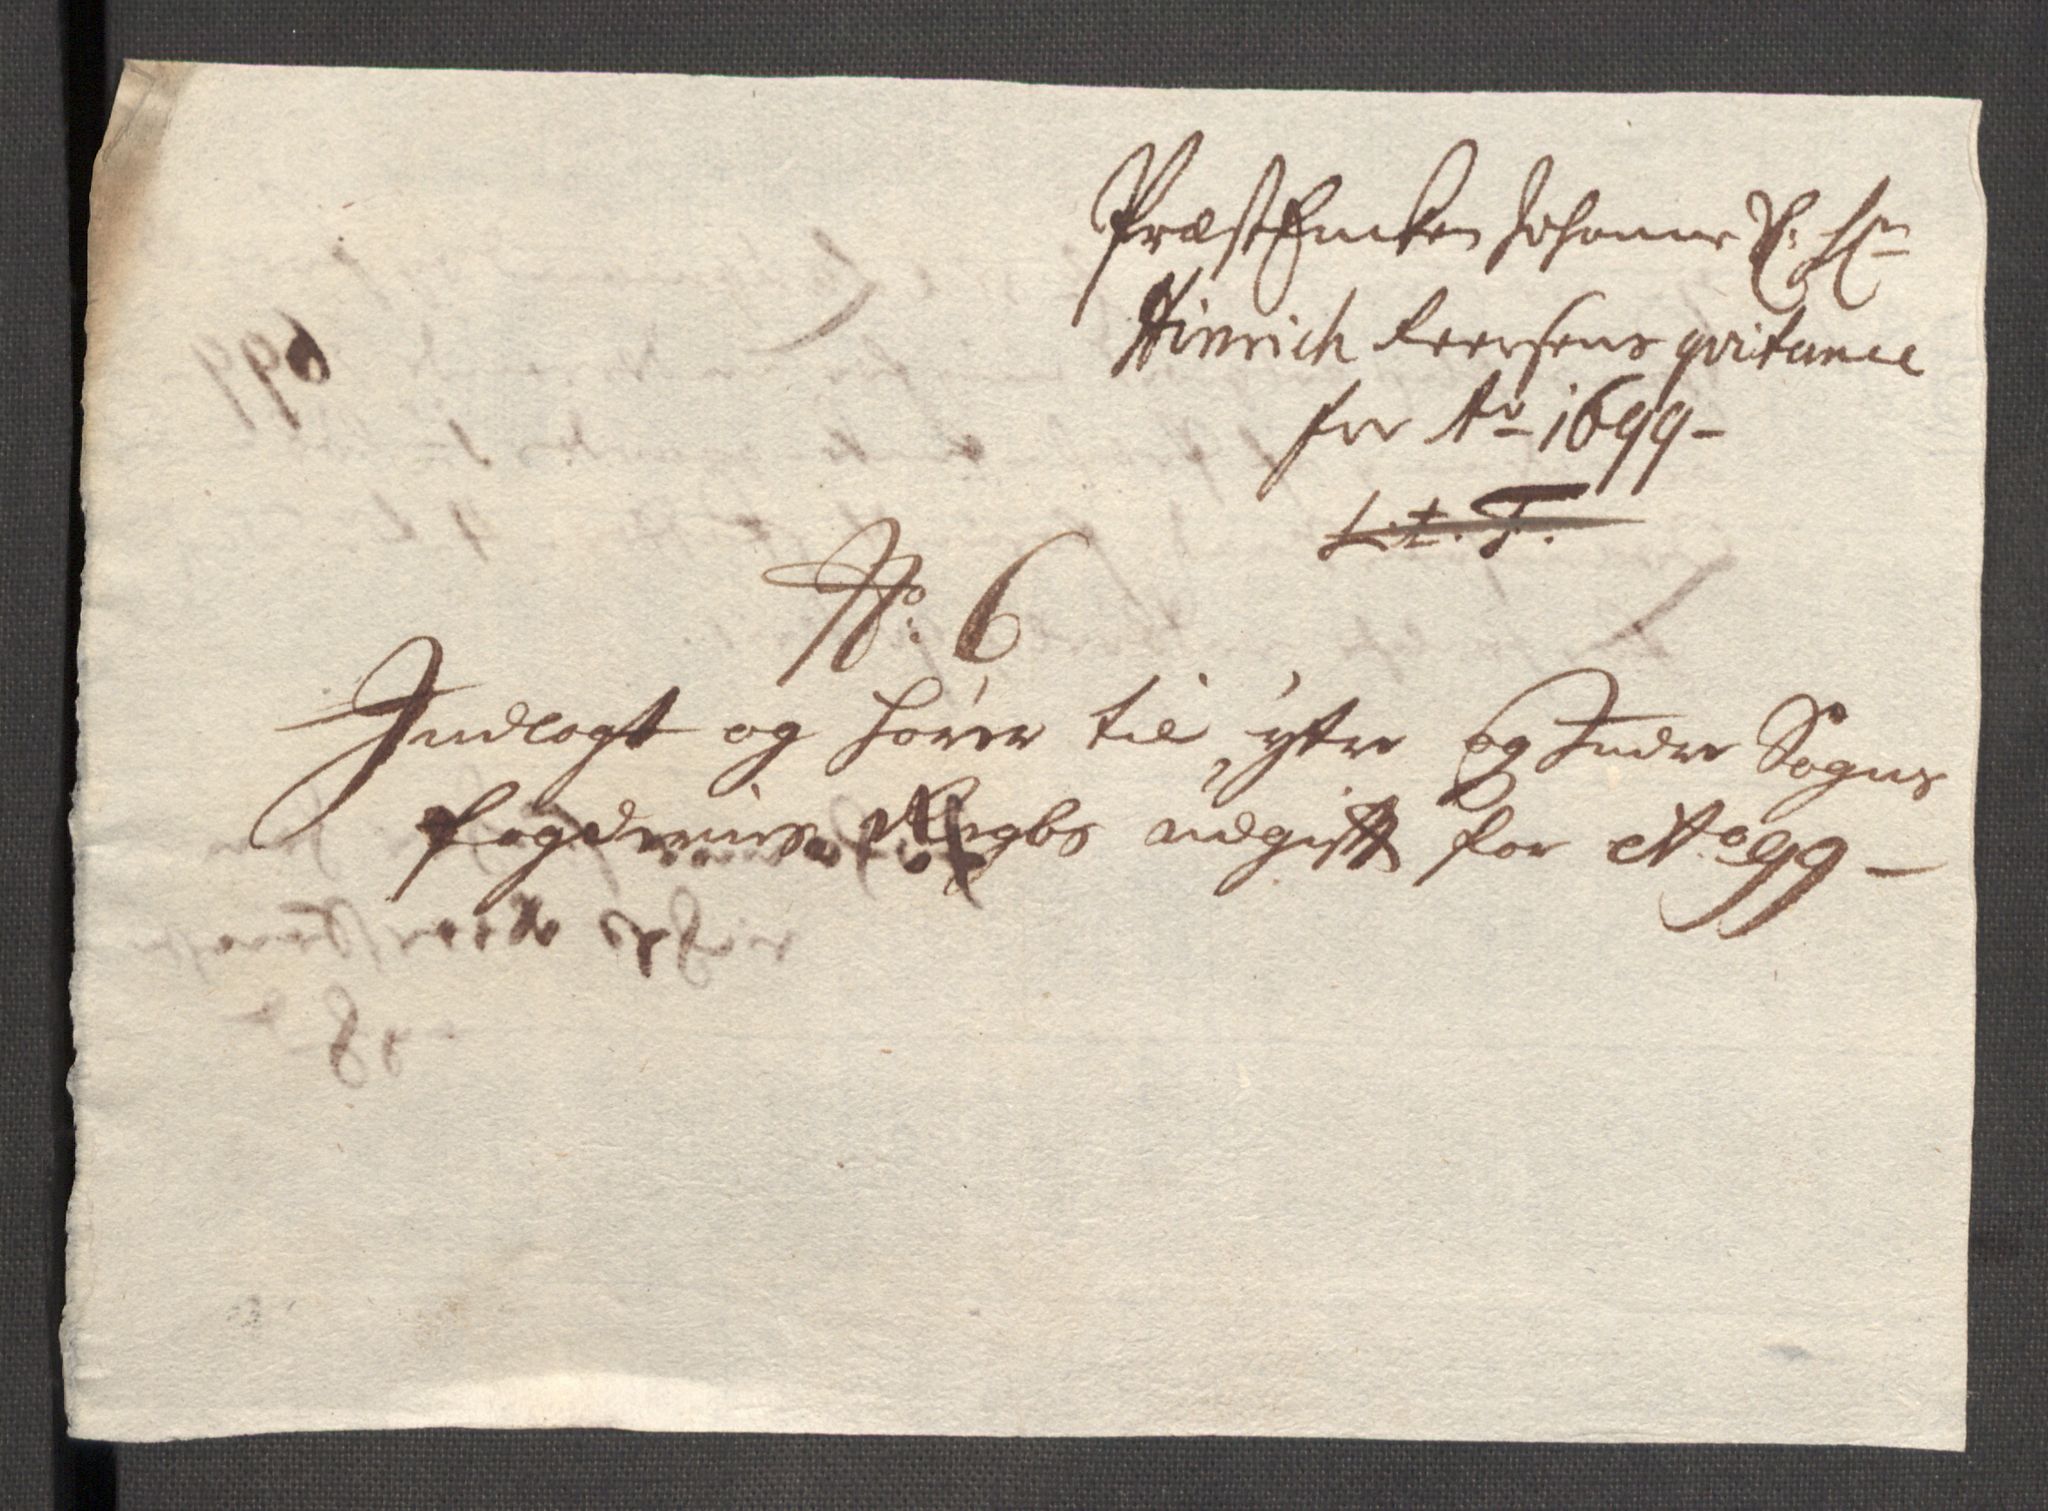 Præst Enken Johanne Sl. Hr
Hinrich Leersens qvitance
for Ao 1699
Lit. F.
No. 6
Indlagt og hører til ytre og Indre Sogns
fogderies Regbs udgift for Ao 99